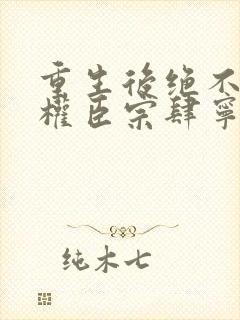 重生後绝不
權臣宗肆寧
纯木七